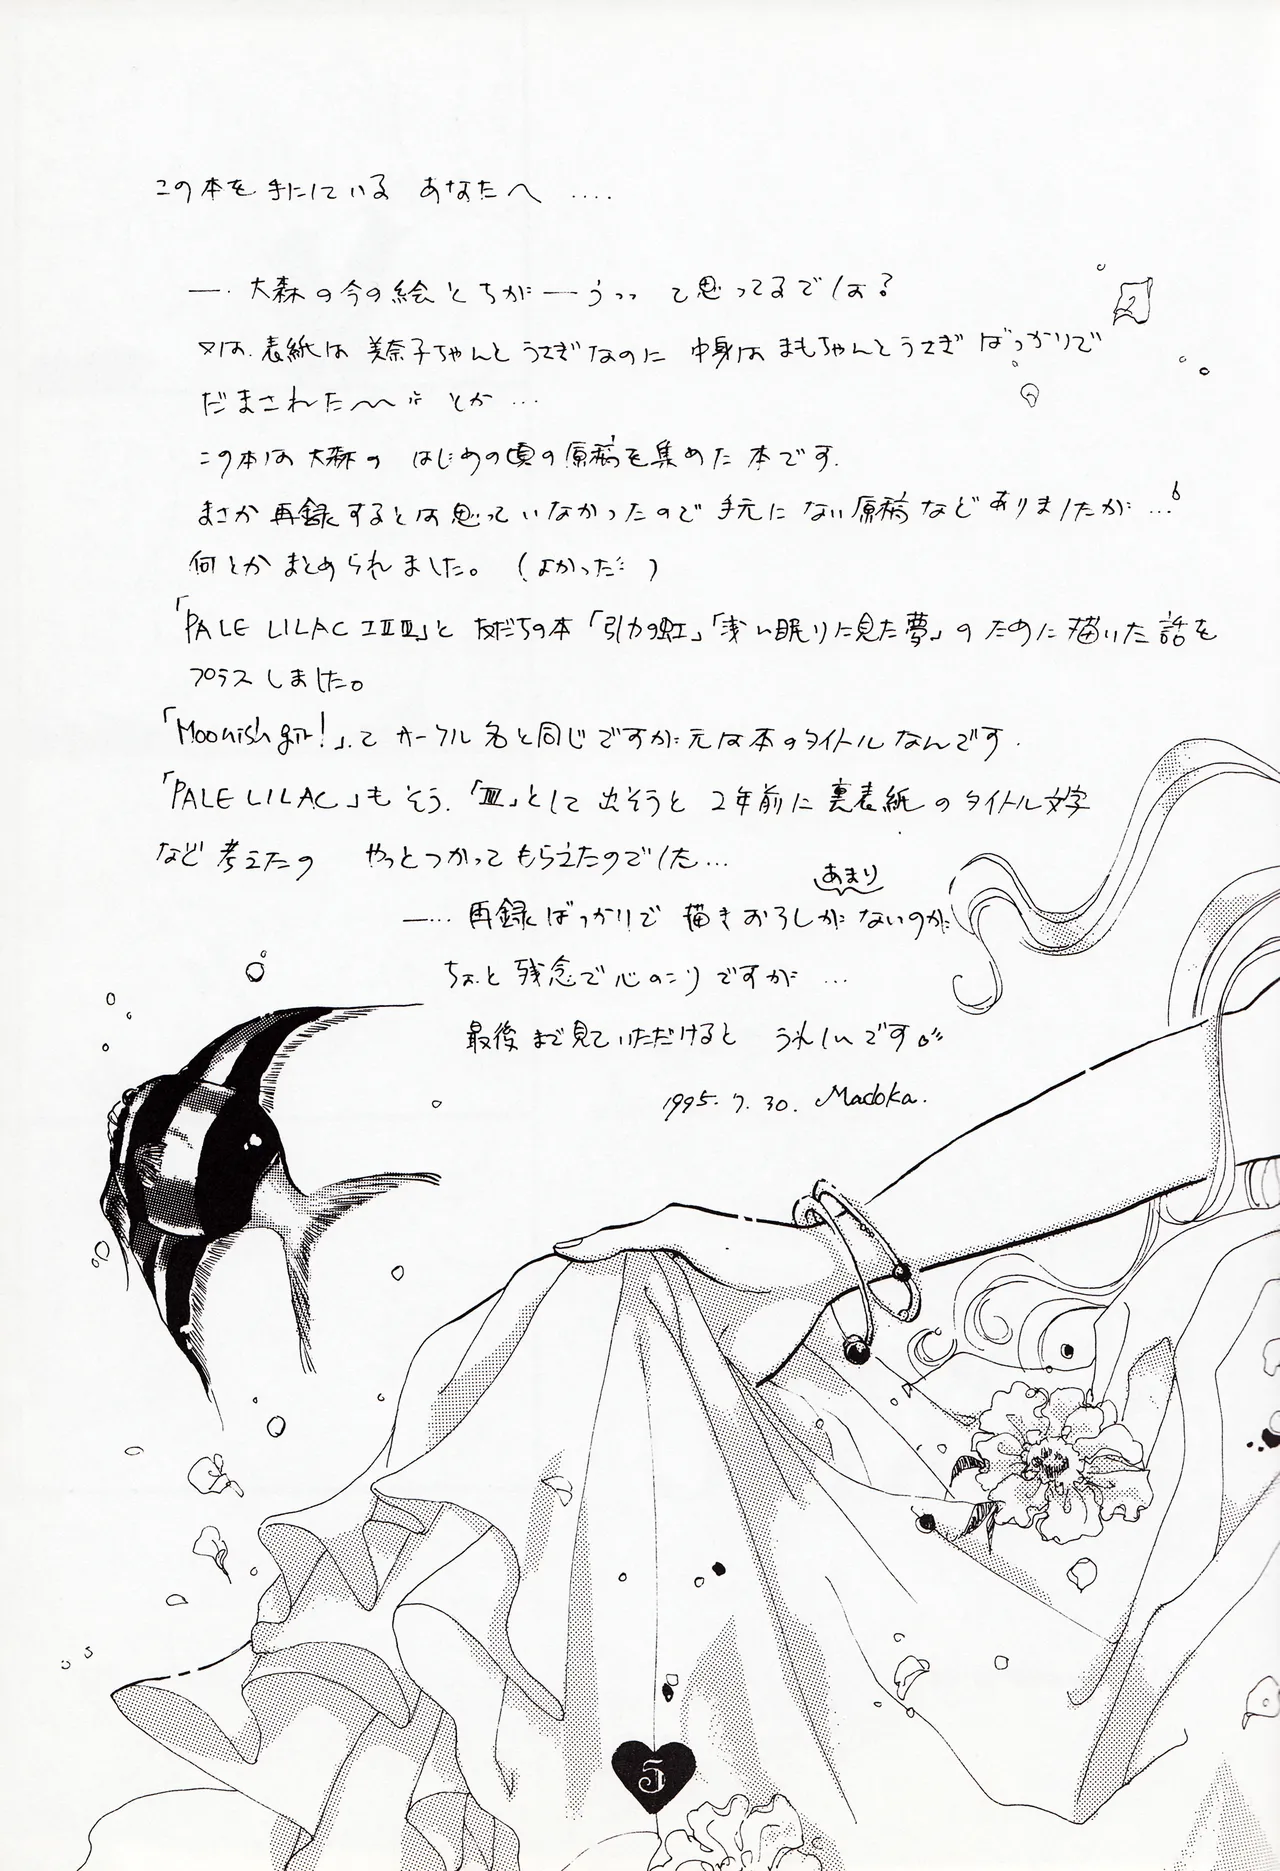 この本を手にしている あなたへ ....
—. 大森の今の絵とちが—うっっ て思ってるでしょ?
又は、表紙は 美奈子ちゃんと うさぎなのに 中身は まもちゃんと うさぎ ばっかりで
だまされた〜〜 とか …
この本は 大森の はじめの頃の原稿を集めた 本です.
まさか 再録するとは思っていなかったので 手元に ない原稿 など ありましたが …
何とか まとめられました。 (よかった )
「PALE LILAC I II III」と 友だちの本 「引力の虹」「浅い眠りに見た夢」のために描いた話を
プラスしました。
「Moonish girl!」って サークル名と同じですが 元は本のタイトルなんです.
「PALE LILAC」も そう. 「III」として 出そうと 2年前に 裏表紙のタイトル文字
など 考えたの やっとつかってもらえたのでした…
—… 再録ばっかりで 描きおろしが あまり ないのが
ちょっと 残念で心のこりですが …
最後まで見ていただけると うれしいです
1995. 7. 30. Madoka.
5